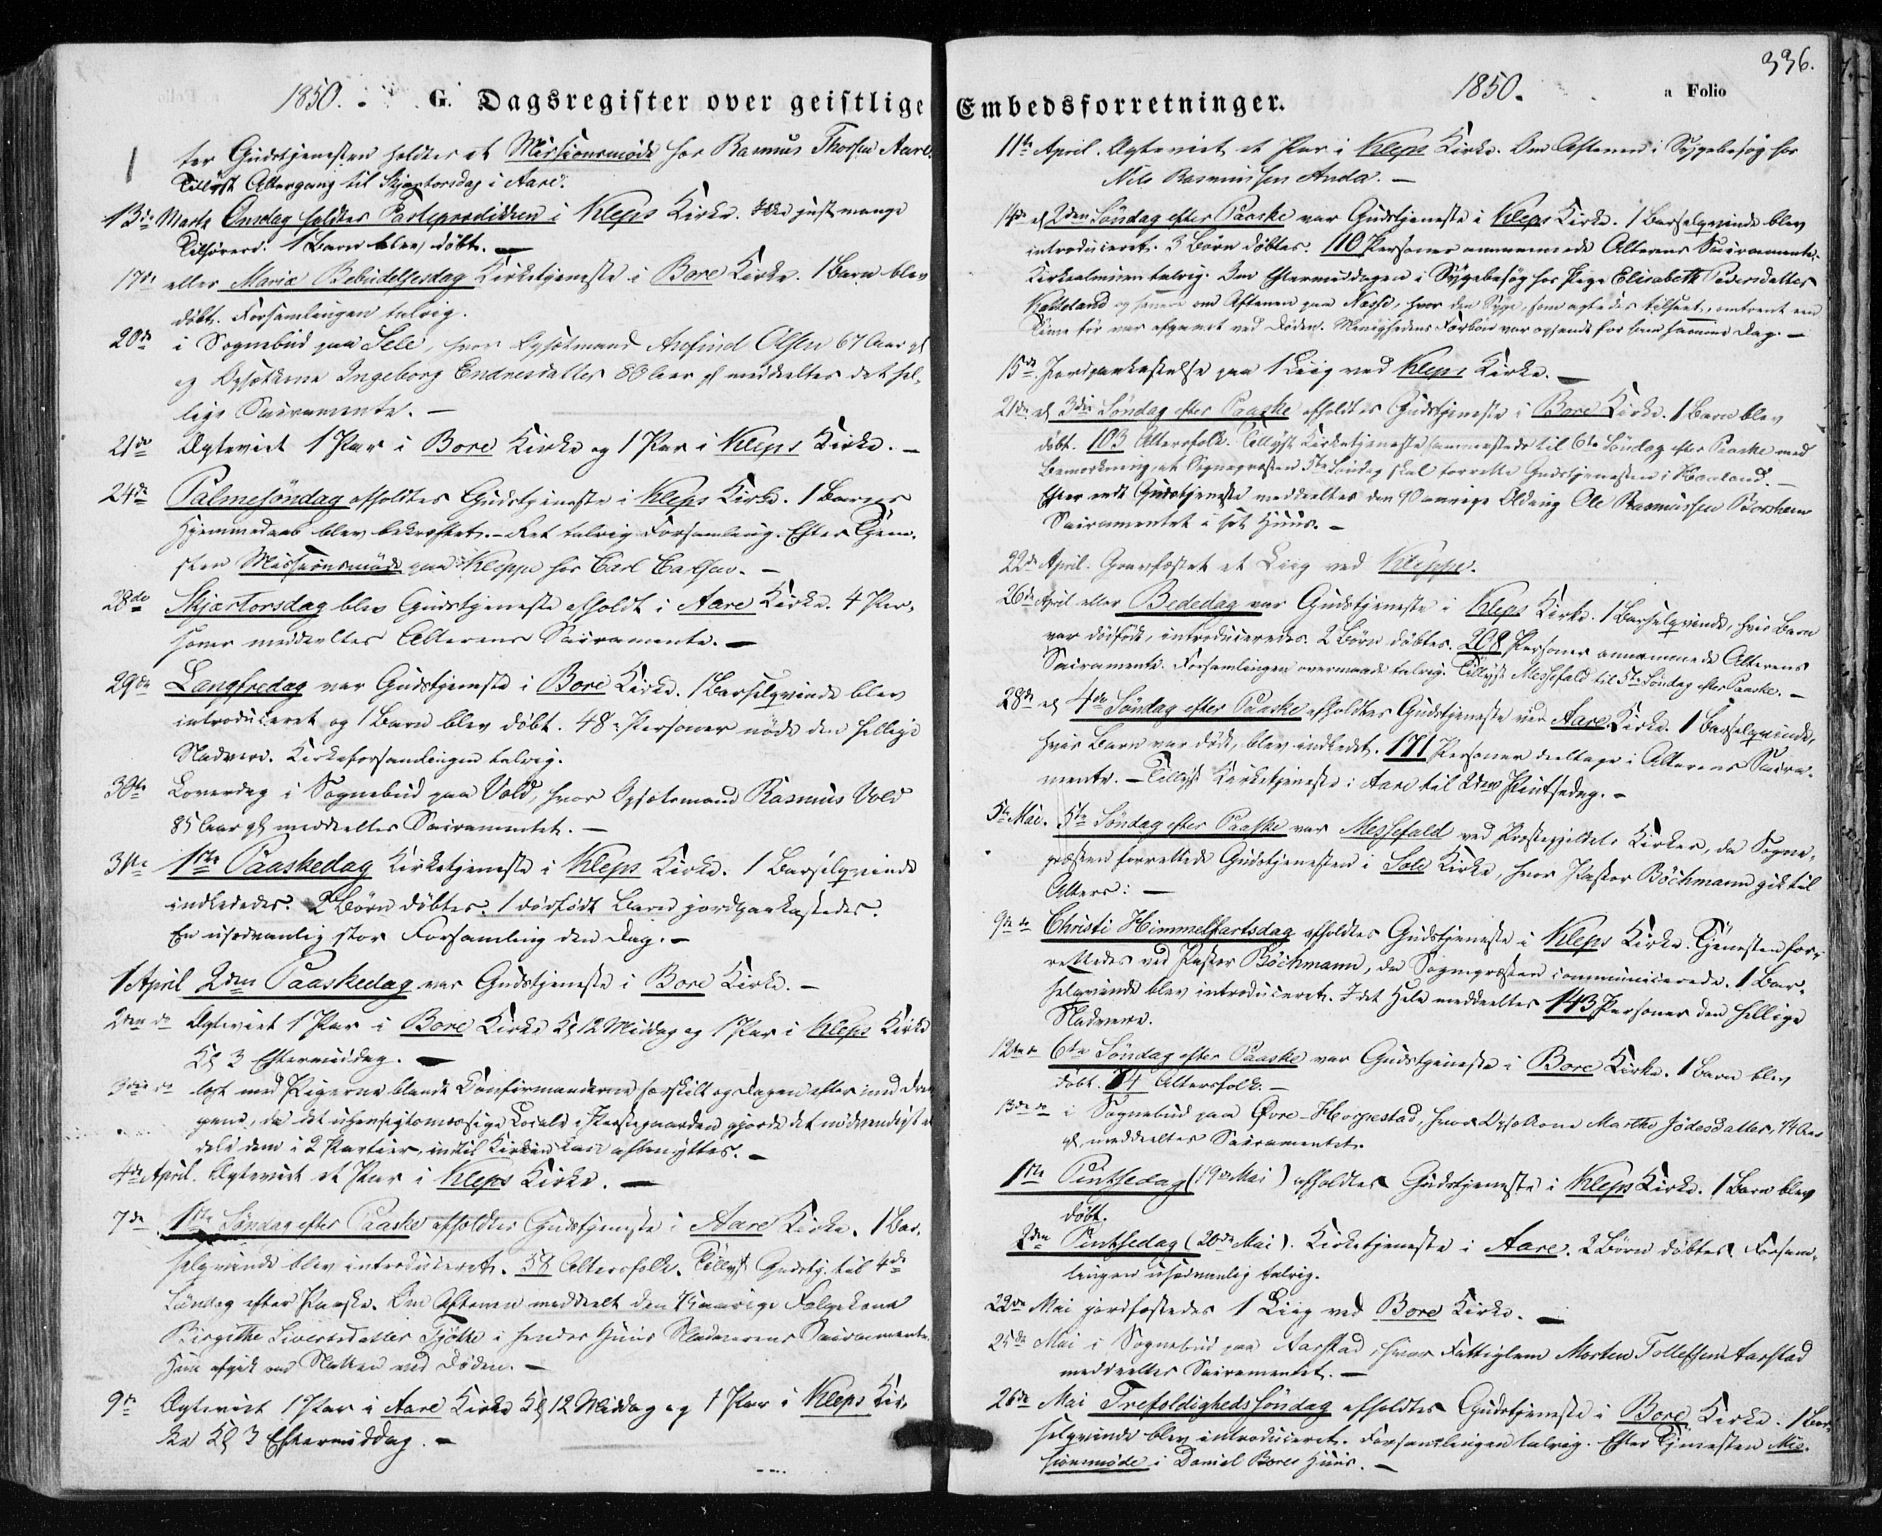 1850. G. Dagsregister over geistlige
ter Gudstjenesten holdtes et Missionsmöde hos Rasmus Thorsen Aare.
Tillyst Altergang til Skjærtorsdag i Aare.
13de Marts Onsdag holdtes Fasteprædiken i Kleps Kirke. Ikke just mange
Tilhörere. 1 Barn blev döbt. —
17de eller Mariæ Bebudelsesdag Kirketjeneste i Bore Kirke. 1 Barn blev
döbt. Forsamlingen talrig.
20de i Sognebud paa Sele, hvor Opsætmand Arefind Olsen 67 Aar gl
og Opsætkone Ingeborg Endresdatter 80 Aar gl meddeeltes det hel-
lige Sacramente. —
21de Ægteviet 1 Par i Bore Kirke og 1 Par i Kleps Kirke. —
24de Palmesöndag afholdtes Gudstjeneste i Kleps Kirke. 1 Barns
Hjemmedaab blev bekræftet. — Ret talrig Forsamling. Efter Tjene-
sten Missionsmöde paa Kleppe hos Carl —
28de Skjærtorsdag blev Gudstjeneste afholdt i Aare Kirke. 4 Per-
soner meddeeltes Alterens Sacramente. —
29de Langfredag var Gudstjeneste i Bore Kirke. 1 Barselqvinde blev
introduceret og 1 Barn blev döbt. 48 Personer nöde den hellige
Nadvere. Kirkeforsamlingen talrig.
30te Löverdag i Sognebud paa Vold, hvor Opsætmand Rasmus Vold
85 Aar gl meddeeltes Sacramentet. —
31te 1ste Paaskedag Kirketjeneste i Kleps Kirke. 1 Barselqvinde
indlededes. 2 Börn döbtes. 1 dödfödt Barn jordpaakastedes.
En usædvanlig stor Forsamling den Dag. —
1 April 2den Paaskedag var Gudstjeneste i Bore Kirke. —
2den do Ægteviet 1 Par i Bore Kirke Kl 12 Middag og 1 Par i Kleps Kirke
Kl 3 Eftermiddag. —
3die do læst med Pigerne blandt Konfirmanderne særskilt og Dagen efter med Dren
gene, da det uhensigtsmæssige Locale i Præstegaarden gjorde det nödvendigt at
dele dem i 2 Partier, indtil Kirken kan afbenyttes. —
4de April. Ægteviet et Par i Kleps Kirke. —
7de 1ste Söndag efter Paaske afholdtes Gudstjeneste i Aare Kirke. 1 Bar-
selqvinde blev introduceret. 58 Altersfolk. Tillyst Gudstj. til 4de
Söndag efter Paaske. Om Aftenen meddeelt den aarige Folgekone
Birgithe Sivertsdatter Tjötte i hendes Huus Nadverens Sacramente.
Hun afgik om Natten ved Döden. —
9de Ægteviet 1 Par i Aare Kirke Kl 12 Middag og 1 Par i Kleps Kir-
ke Kl 3 Eftermiddag. —
336.
Embedsforretninger. 1850. a Folio
11te April. Ægteviet et Par i Kleps Kirke. Om Aftenen i Sygebesög hos
Nils Rasmussen Anda. —
14de el 2den Söndag efter Paaske var Gudstjeneste i Kleps Kirke. 1 Barselqvinde blev
introduceret. 3 Börn döbtes. 110 Personer annammede Alterens Sacramente.
Kirkealmuen talrig. Om Eftermiddagen i Sygebesög hos Pige Elisabeth Pedersdatter
og senere om Aftenen paa Næsse, hvor den Syge, som agtedes tilseet, omtrent een
Time för var afgaaet ved Döden. Menighedens Forbön var opsendt for ham samme Dag. —
15de Jordpaakastelse paa 1 Liig ved Kleps Kirke. —
21de el 3die Söndag efter Paaske afholdtes Gudstjeneste i Bore Kirke. 1 Barn blev
döbt. 103 Altersfolk. Tillyst Kirketjeneste sammesteds til 6te Söndag efter Paaske med
Bemærkning at Sognepræsten 5te Söndag skal forrette Gudstjenesten i Haaland. —
Efter endt Gudstjeneste meddeeltes den 90 aarige Olding Ole Rasmussen Borsheim
Sacramentet i sit Huus. —
22de April. Gravfæstet et Liig ved Kleppe.
26de April eller Bededag var Gudstjeneste i Kleps Kirke. 1 Barselqvinde, hvis Barn
var dödfödt, introduceredes. 2 Börn döbtes. 208 Personer annammede Alterens
Sacramente. Forsamlingen overmaade talrig. Tillyst Messefald til 5te Söndag efter Paaske. —
28de el 4de Söndag efter Paaske afholdtes Gudstjeneste ved Aare Kirke. 1 Barselqvinde,
hvis Barn var dödt, blev indledt. 171 Personer deeltoge i Alterens Sacra-
mente. — Tillyst Kirketjeneste i Aare til 2den Pintsedag. —
5te Mai. 5te Söndag efter Paaske var Messefald ved Præstegjeldets Kirker, da Sogne-
præsten forrettede Gudstjenesten i Sole Kirke, hvor Pastor Böckmann gik til
Alters: —
9de do Christi Himmelfartsdag afholdtes Gudstjeneste i Kleps Kirke. Tjenesten for-
rettedes ved Pastor Böckmann, da Sognepræsten communicerede. 1 Bar-
selqvinde blev introduceret. I det Hele meddeeltes 143 Personer den hellige
Nadvere.
12te do 6te Söndag efter Paaske var Gudstjeneste i Bore Kirke. 1 Barn blev
döbt. 74 Altersfolk. —
13de do i Sognebud paa Övre-Horpestad, hvor Opsætkone Marthe Jödesdatter, 74 Aar
gl, meddeeltes Sacramentet.
1ste Pintsedag (19de Mai) afholdtes Gudstjeneste i Kleps Kirke. 1 Barn blev
döbt.
2den Pintsedag (20de Mai). Kirketjeneste i Aare. 2 Börn döbtes. Forsam-
lingen usædvanlig talrig.
22de Mai jordfæstedes 1 Liig ved Bore Kirke. —
25de Mai i Sognebud paa Aarstad, hvor Fattiglem Morten Tollefsen Aarstad
meddeeltes Sacramentet. —
26de Mai Trefoldighedssöndag afholdtes Gudstjeneste i Bore Kirke. 1 Bar-
selqvinde blev introduceret. Forsamlingen talrig. Efter Tjenesten Mis-
sionsmöde i Daniel Bores Huus. —